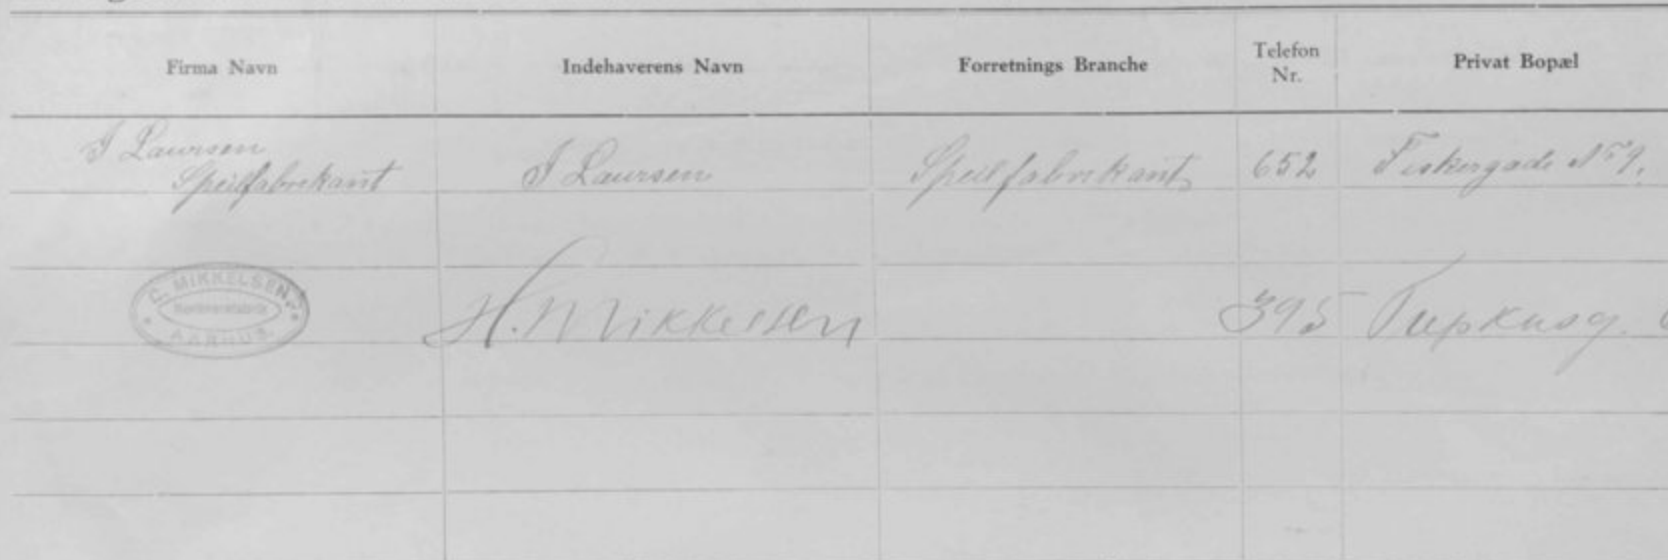 Firma Navn
Indehaverens Navn
Forretnings Branche
Telefon
Nr.
Privat Bopæl
J Laursen
Speilfabrikant
J Laursen
Speilfabrikant
652
Fiskergade No 9.
C. MIKKELSEN
AARHUS.
H. Mikkelsen
395